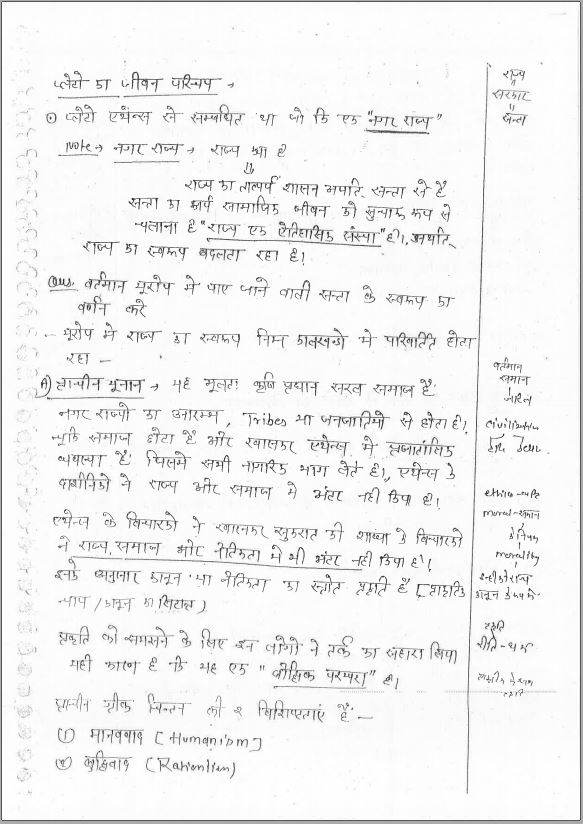 प्लेटो का जीवन परिचय →
⊙ प्लेटो एथेंस से सम्बंधित था जो कि एक "नगर राज्य"
Note → नगर राज्य → राज्य क्या है
⇓
राज्य का तात्पर्य शासन अर्थात सत्ता से है
सत्ता का कार्य सामाजिक जीवन को सुचारू रूप से
चलाना है "राज्य एक ऐतिहासिक संस्था" है। अर्थात्
राज्य का स्वरूप बदलता रहा है।
Ques. वर्तमान यूरोप मे पाए जाने वाली सत्ता के स्वरूप का
वर्णन करे
– यूरोप मे राज्य का स्वरूप निम्न कालखण्डो मे परिवर्तित होता
रहा –
A) प्राचीन यूनान → यह मूलतः कृषि प्रधान सरल समाज है
नगर राज्यो का प्रारम्भ, Tribes या जनजातियो से होता है।
चूकि समाज छोटा है और खासकर एथेन्स मे प्रजातांत्रिक
व्यवस्था है जिसमे सभी नागरिक भाग लेते है।, एथेन्स के
दार्शनिको ने राज्य और समाज मे अंतर नही किया है।
एथेन्स के विचारको ने खासकर सुकरात की शाखा के विचारको
ने राज्य, समाज और नैतिकता मे भी अंतर नही किया है।
इनके अनुसार कानून या नैतिकता का स्त्रोत प्रकृति है [प्राकृतिक
न्याय / कानून का सिद्धांत)
प्रकृति को समझने के लिए इन लोगो ने तर्क का सहारा लिया
यही कारण है कि यह एक "बौद्धिक परम्परा" है।
प्राचीन ग्रीक चिन्तन की 2 विशिष्टताएं है –
① मानववाद [Humanism]
② बुद्धिवाद (Rationlism)
राज्य
सरकार
सत्ता
वर्तमान
समाज
civilization
ethics
moral – समाज
morality
प्रकृति
रीति – धर्म